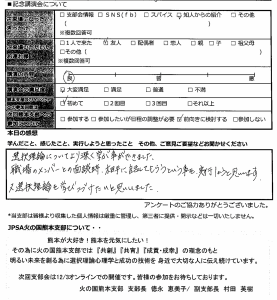 ■記念講演会について
□支部会情報 □SNS(fb) □スパイス □知人からの紹介 □その他
( )
※複数回答可
□1人で来た □友人 □配偶者 □恋人 □親 □子 □祖父母
□その他( )
※複数回答可
長 普 短
□大変満足 □満足 □普通 □不満
□初めて □2回目 □3回目 □それ以上
□参加する □参加したいが日程の調整が必要 □前向きに検討する □参加しない
本日の感想
学んだこと、感じたこと、実行しようと思ったこと その他、ご意見ご要望などお聞かせください
選択理論についてより深く学ぶ事ができました。
職場のメンバーとの面談時、
選択理論を学びつづけたいと思いました。
アンケートのご協力ありがとうございました。
*当支部は皆様より収集した個人情報は厳重に管理し、第三者に提供・開示などは一切いたしません。
JPSA火の国熊本支部について・・・
熊本が大好き!熊本を元気にしたい!
その為に火の国熊本支部では『共創』『共育』『成貢・成幸』の理念のもと
明るい未来を創る為に選択理論心理学と成功の技術を身近で大切な人に伝え続けています。
次回支部会は12/3オンラインでの開催です。皆様の参加をお待ちしております。
火の国熊本支部 支部長 徳永 恵美子/副支部長 村田 英樹